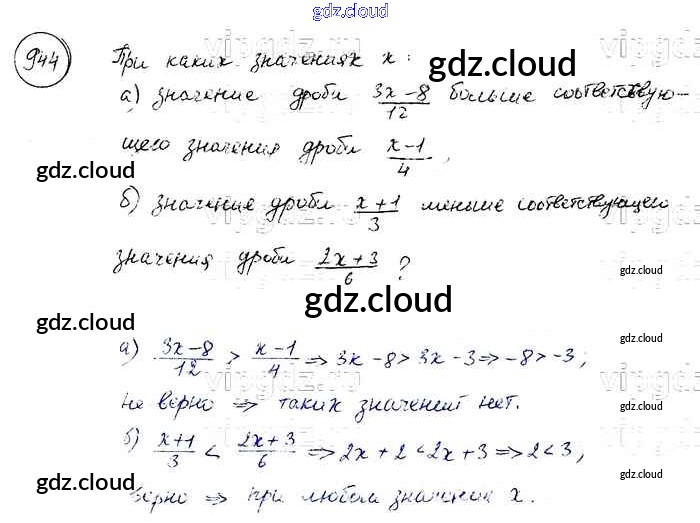 gdz.cloud
944 При каких значениях x:
gdz.cloud
а) значение дроби (3x-8)/12 больше соответствую-
щего значения дроби (x-1)/4,
gdz.cloud gdz.cloud
б) значение дроби (x+1)/3 меньше соответствующего
значения дроби (2x+3)/6 ?
gdz.cloud
gdz.cloud
gdz.cloud
gdz.cloud
а) (3x-8)/12 > (x-1)/4 ⇒ 3x-8 > 3x-3 ⇒ -8 > -3;
не верно ⇒ таких значений нет.
gdz.cloud
б) (x+1)/3 < (2x+3)/6 ⇒ 2x+2 < 2x+3 ⇒ 2 < 3,
gdz.cloud gdz.cloud gdz.cloud
верно ⇒ при любом значении x.